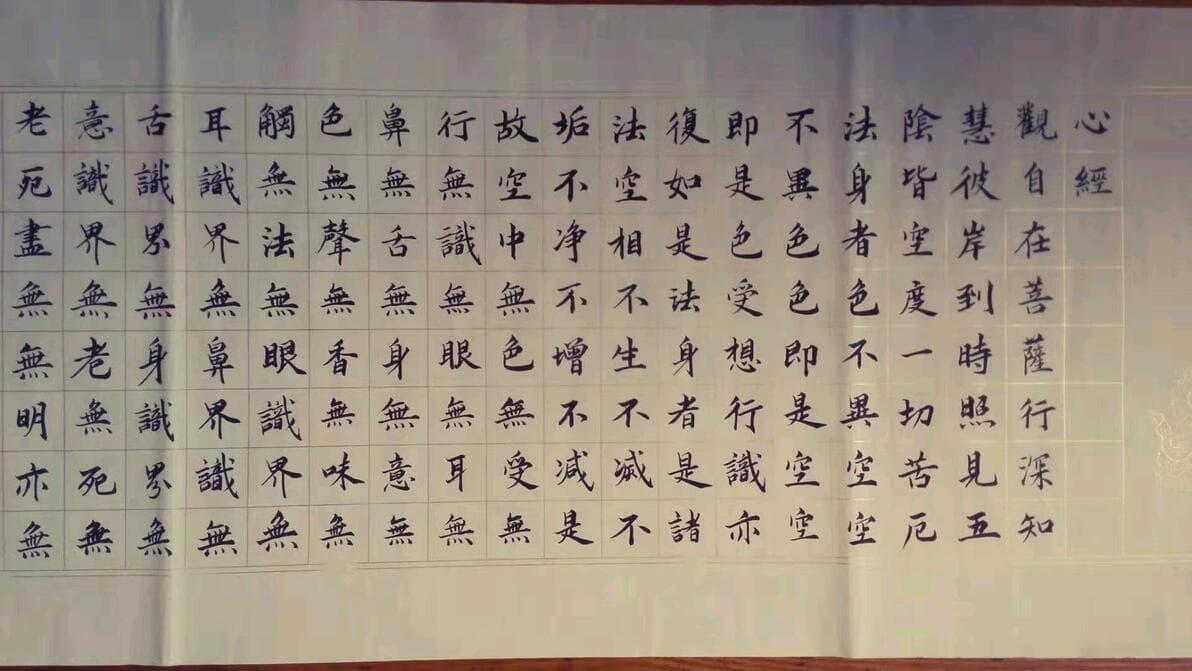 心經
觀自在菩薩行深知
慧彼岸到時照見五
陰皆空度一切苦厄
法身者色不異空空
不異色色即是空空
即是色受想行識亦
復如是法身者是諸
法空相不生不滅不
垢不净不增不減是
故空中無色無受無
行無識無眼無耳無
鼻無舌無身無意無
色無聲無香無味無
觸無法無眼識界無
耳識界無鼻界識無
舌識界無身識界無
意識界無老無死無
老死盡無無明亦無